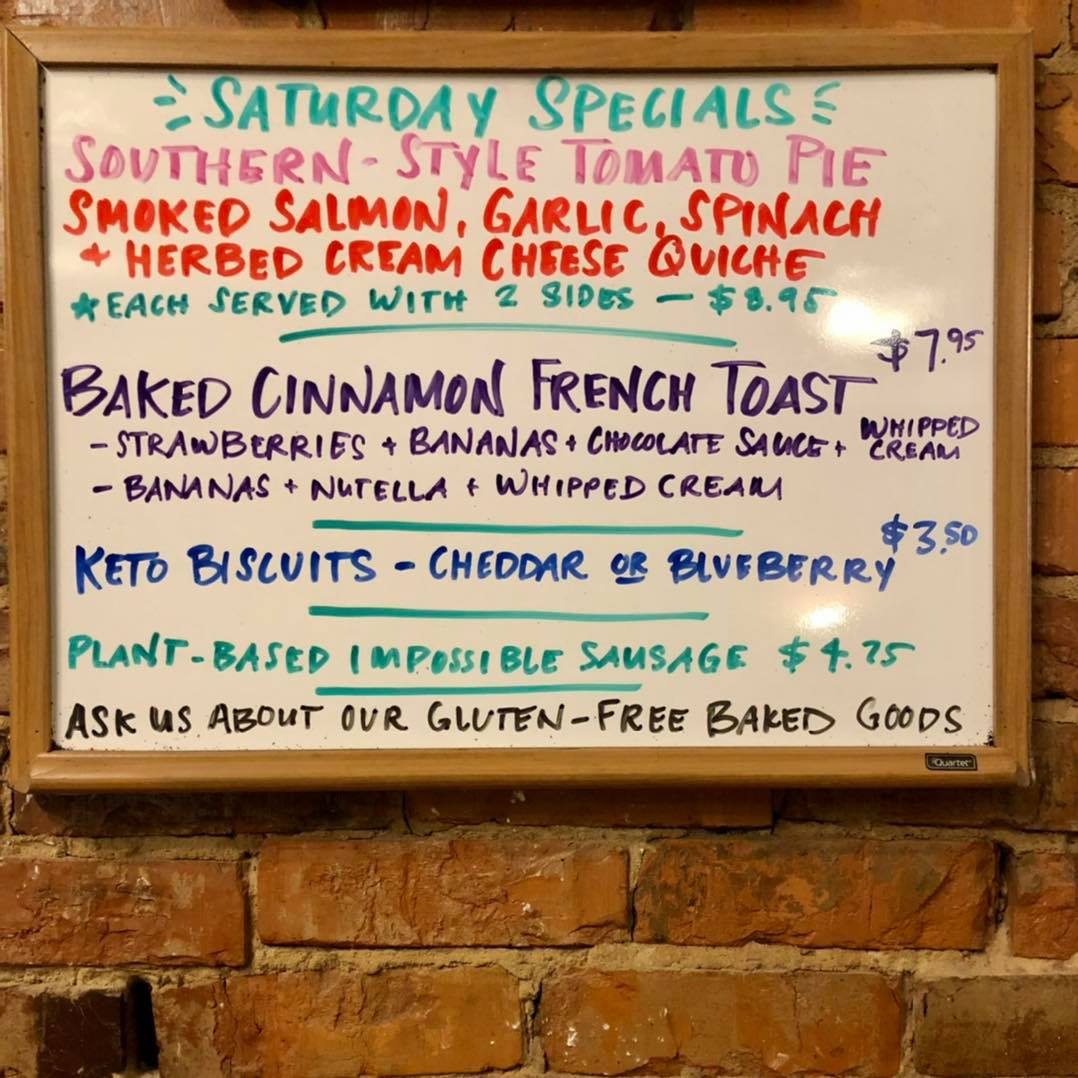 SATURDAY SPECIALS
SOUTHERN-STYLE TOMATO PIE
SMOKED SALMON, GARLIC, SPINACH
+ HERBED CREAM CHEESE QUICHE
*EACH SERVED WITH 2 SIDES — $8.95
$7.95
BAKED CINNAMON FRENCH TOAST
- STRAWBERRIES + BANANAS + CHOCOLATE SAUCE + WHIPPED CREAM
- BANANAS + NUTELLA + WHIPPED CREAM
$3.50
KETO BISCUITS - CHEDDAR OR BLUEBERRY
PLANT-BASED IMPOSSIBLE SAUSAGE $4.25
ASK US ABOUT OUR GLUTEN-FREE BAKED GOODS
Quartet